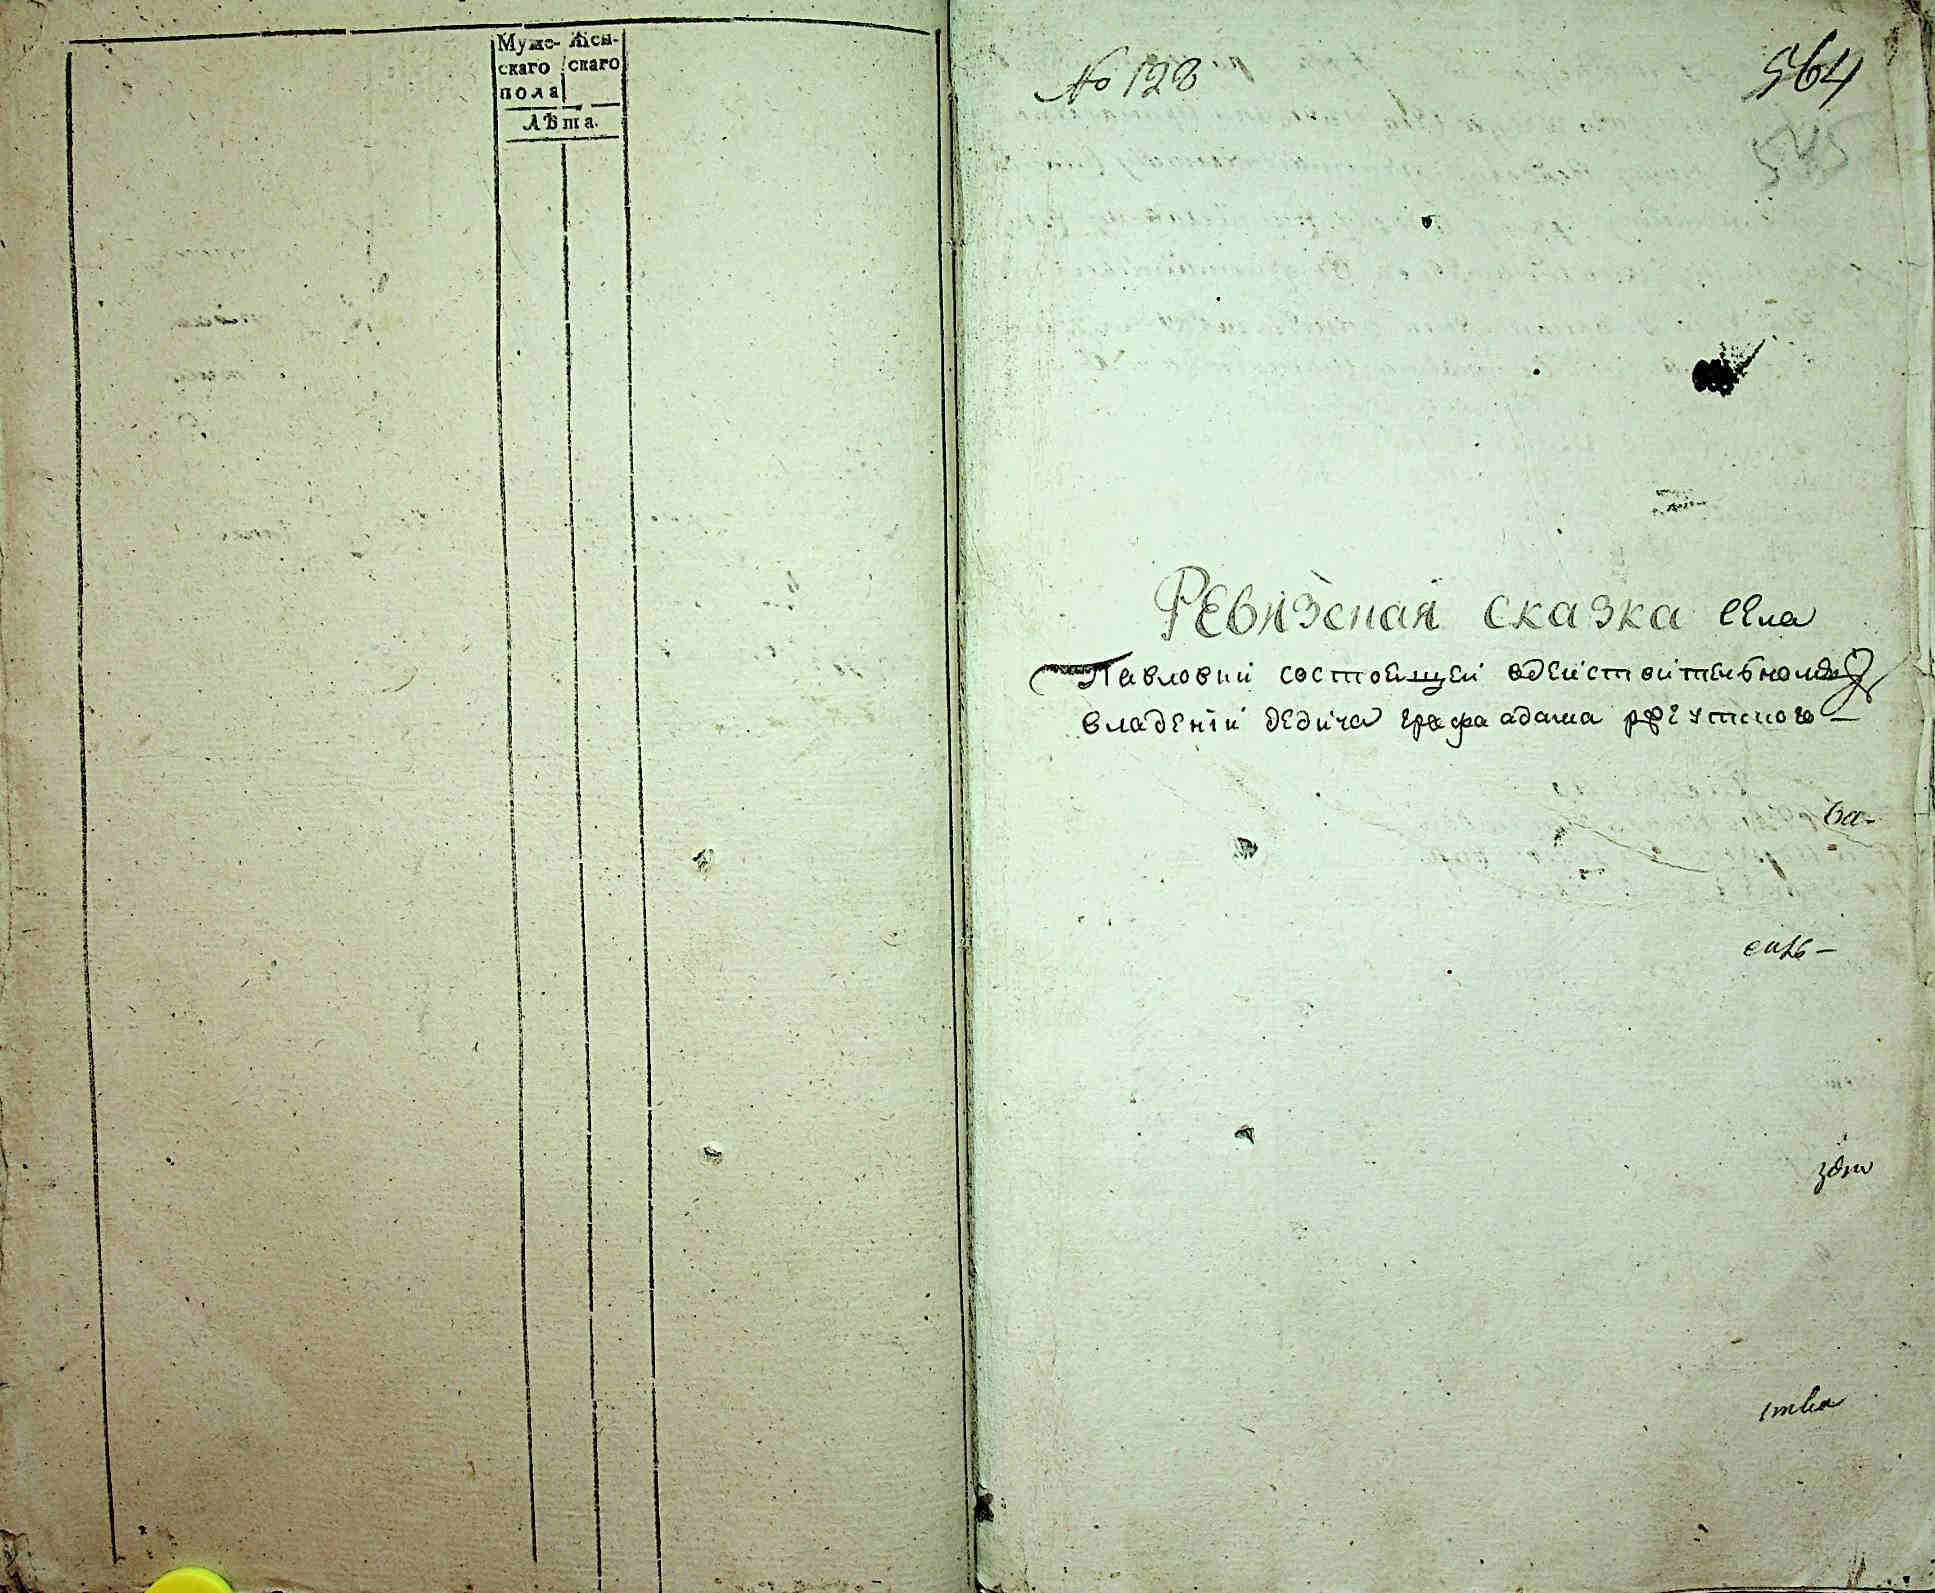 Муже- Жен-
скаго скаго
пола
Лѣта.
№ 128
564
545
Ревизская сказка села
Павловки состоящей вдействительномъ
владенїи дедича графа адама ржеутского
ва-
сихъ-
здт
ства